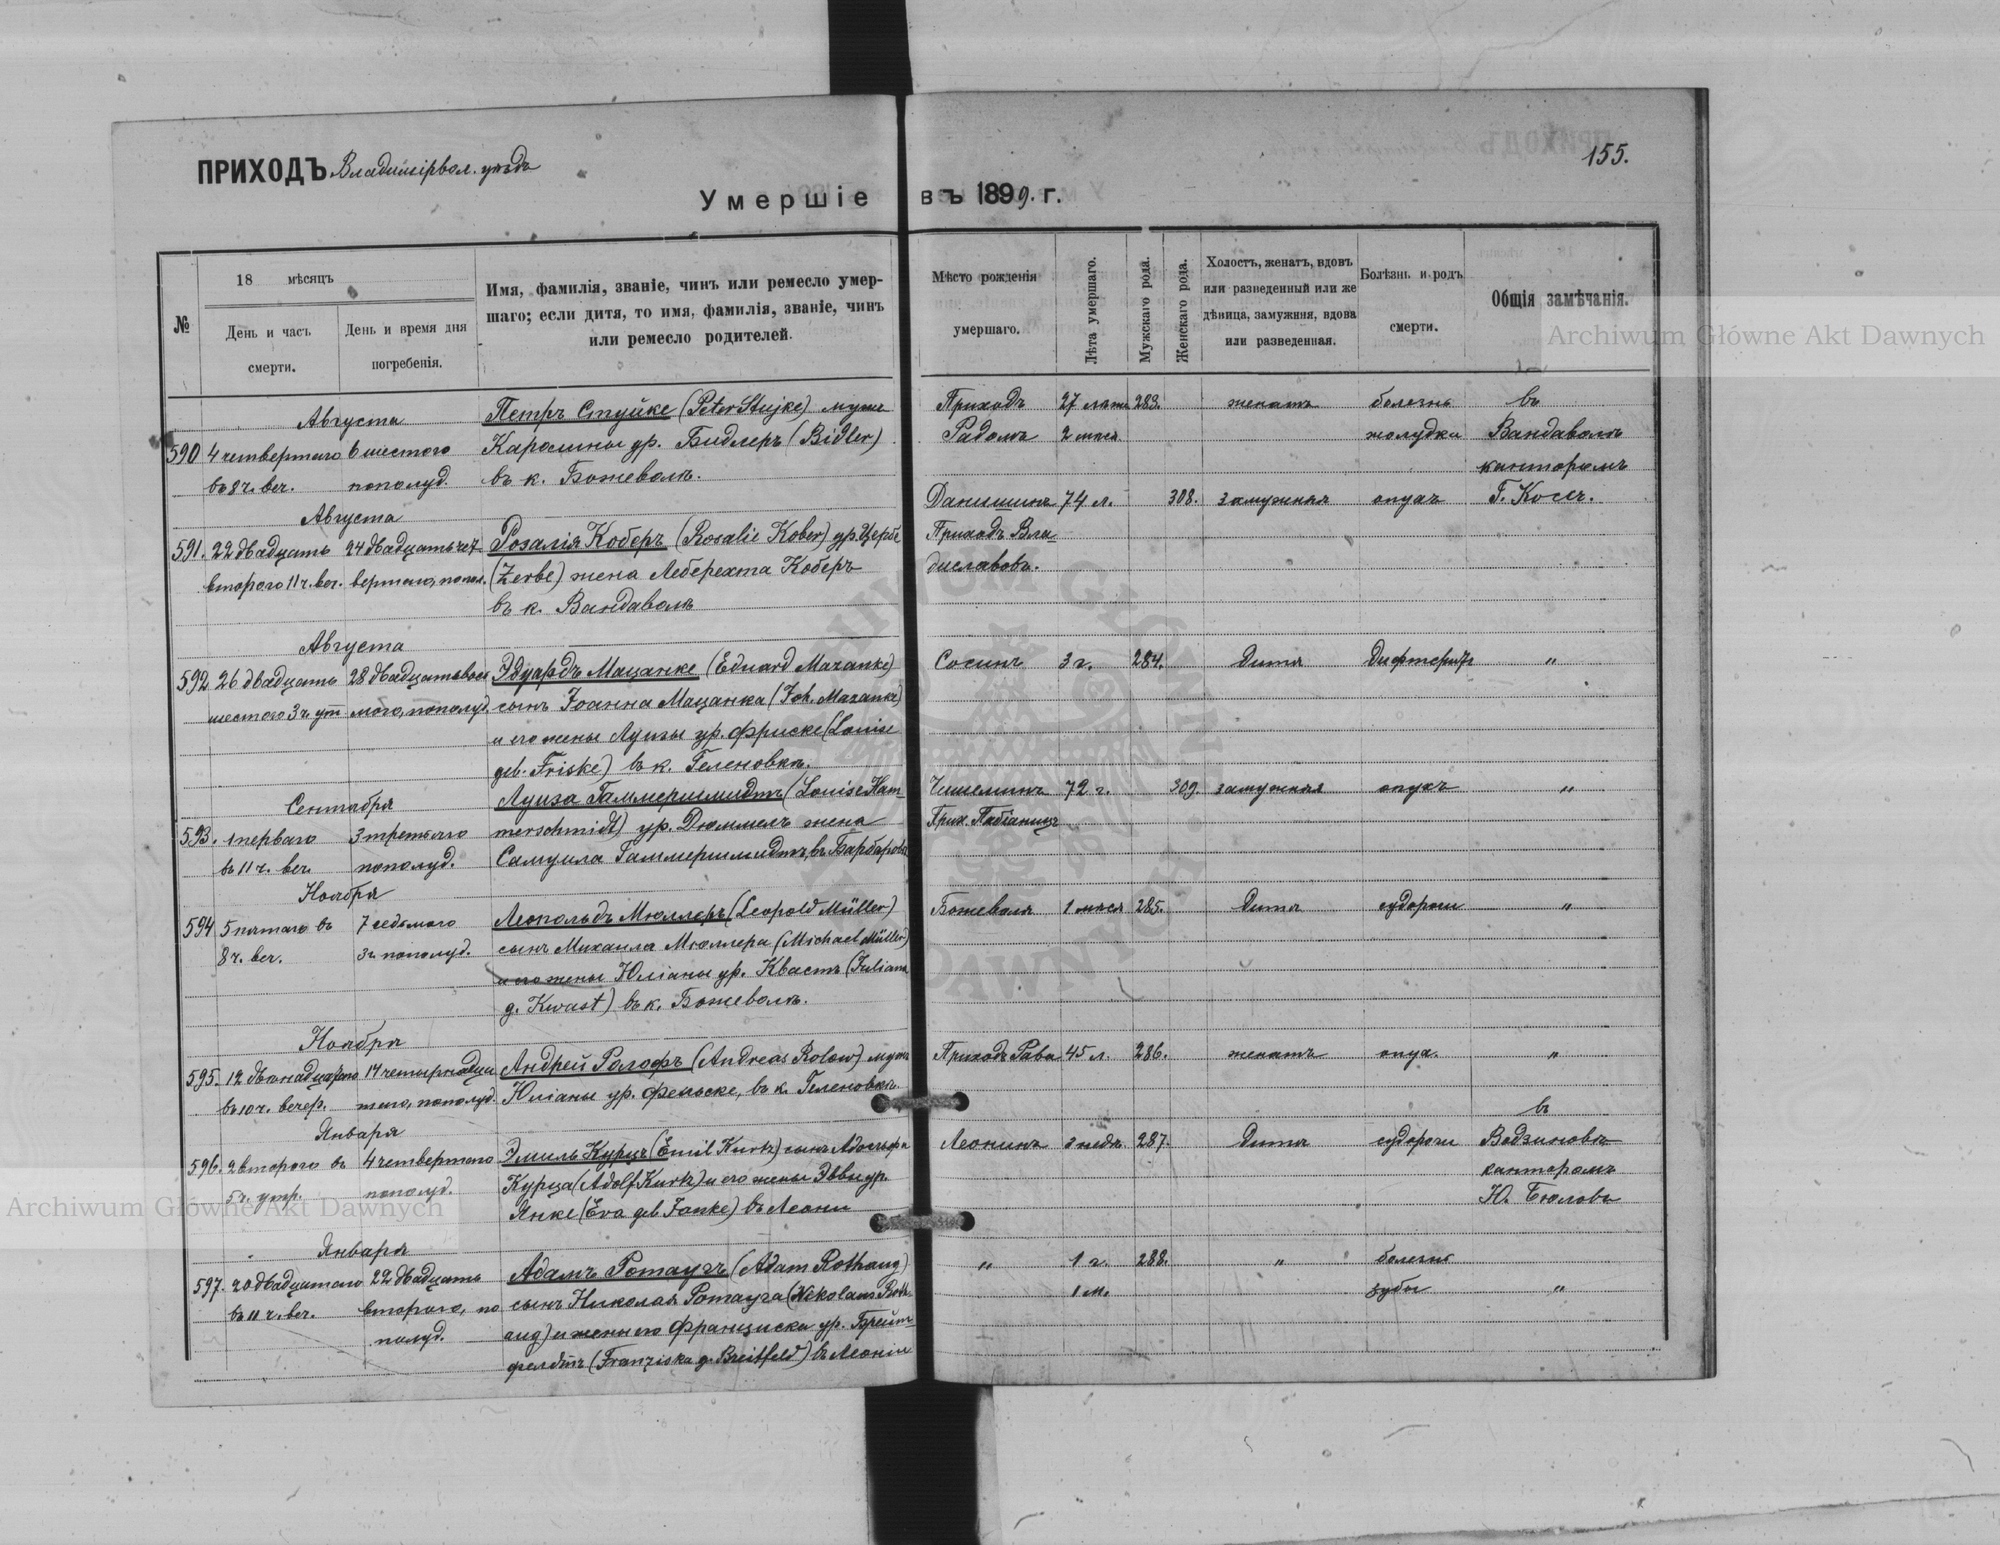 155.
ПРИХОДЪ Владимірвол. уѣздъ
Умершіе въ 1899. г.
№
18 мѣсяцъ
День и часъ смерти.
День и время дня погребенія.
Имя, фамилія, званіе, чинъ или ремесло умер-
шаго; если дитя, то имя, фамилія, званіе, чинъ
или ремесло родителей.
Мѣсто рожденія
умершаго.
Лѣта умершаго.
Мужскаго рода.
Женскаго рода.
Холостъ, женатъ, вдовъ
или разведенный или же
дѣвица, замужняя, вдова
или разведенная.
Болѣзнь и родъ
смерти.
Общія замѣчанія.
Archiwum Główne Akt Dawnych
Августа Петръ Стуйке (Peter Stujke) мужъ Приходъ 27 283. женатъ болезнь въ
590 4 четвертаго 6 шестого Каролины ур. Бидлеръ (Bidler) Радомъ 2 желудка Вандаволь
въ 8 ч. веч. пополуд. въ к. Божеволь. канторомъ
Августа 74 л. 308. замужняя опухъ Г. Косъ.
591. 22 двадцать 24 двадцать чет- Розалія Коберъ (Rosalie Kober) ур. Цербе Приходъ Вла-
второго 11 ч. веч. вертаго, попол. (Zerbe) жена Леберехта Коберъ диславовъ.
въ к. Вандаволь
Августа
592 26 двадцать 28 двадцать вось Эдуардъ Мацанке (Eduard Mazanke) Сосинъ 3 г. 284. дитя дифтеритъ "
шестого 3 ч. ут мого, пополуд. сынъ Іоанна Мацанка (Joh. Mazanke)
и его жены Луизы ур. Фриске (Louise
geb. Friske) въ к. Геленовкѣ.
Сентября Луиза Гаммершмидтъ (Louise Ham- 72 г. 309. замужняя опухъ "
593. 1 перваго 3 третьяго merschmidt) ур. Дюммелъ жена Прих. Пабіаницъ
въ 11 ч. веч. пополуд. Самуила Гаммершмидтъ, въ Барбаровѣ
Ноября
594 5 пятаго въ 7 седьмого Леопольдъ Мюллеръ (Leopold Müller) Божеволя 1 мѣся 285. дитя судороги "
8 ч. веч. 3 ч. пополуд. сынъ Михаила Мюллера (Michael Müller)
и его жены Юліаны ур. Квастъ (Juliana
g. Kwast) въ к. Божеволь.
Ноября
595. 12 двѣнадцатаго 14 четырнадца Андрей Ролофъ (Andreas Rolow) мужъ Приходъ Рава 45 л. 286. женатъ опух. "
въ 10 ч. вечер. таго, пополуд. Юліаны ур. Фельске, въ к. Геленовкѣ.
Января въ
596. 2 второго въ 4 четвертаго Эмиль Курцъ (Emil Kurtz) сынъ Адольфа Леонинъ 3 недѣ. 287. дитя судороги Водзиновкѣ
5 ч. утр. пополуд. Курца (Adolf Kurtz) и его жены Эввы ур. канторомъ
Янке (Eva geb Janke) въ Леони Ю. Бюловъ
Archiwum Główne Akt Dawnych
Января
597. 20 двадцатаго 22 двадцать Адамъ Ротаугъ (Adam Rothaug) " 1 г. 288. " болезнь
въ 11 ч. веч. второго, по сынъ Николая Ротауга (Nikolaus Roth- 1 м. зубы "
полуд. aug) и жены его Франциска ур. Брейт-
фелдтъ (Franziska g. Breitfeld) въ Леоніи